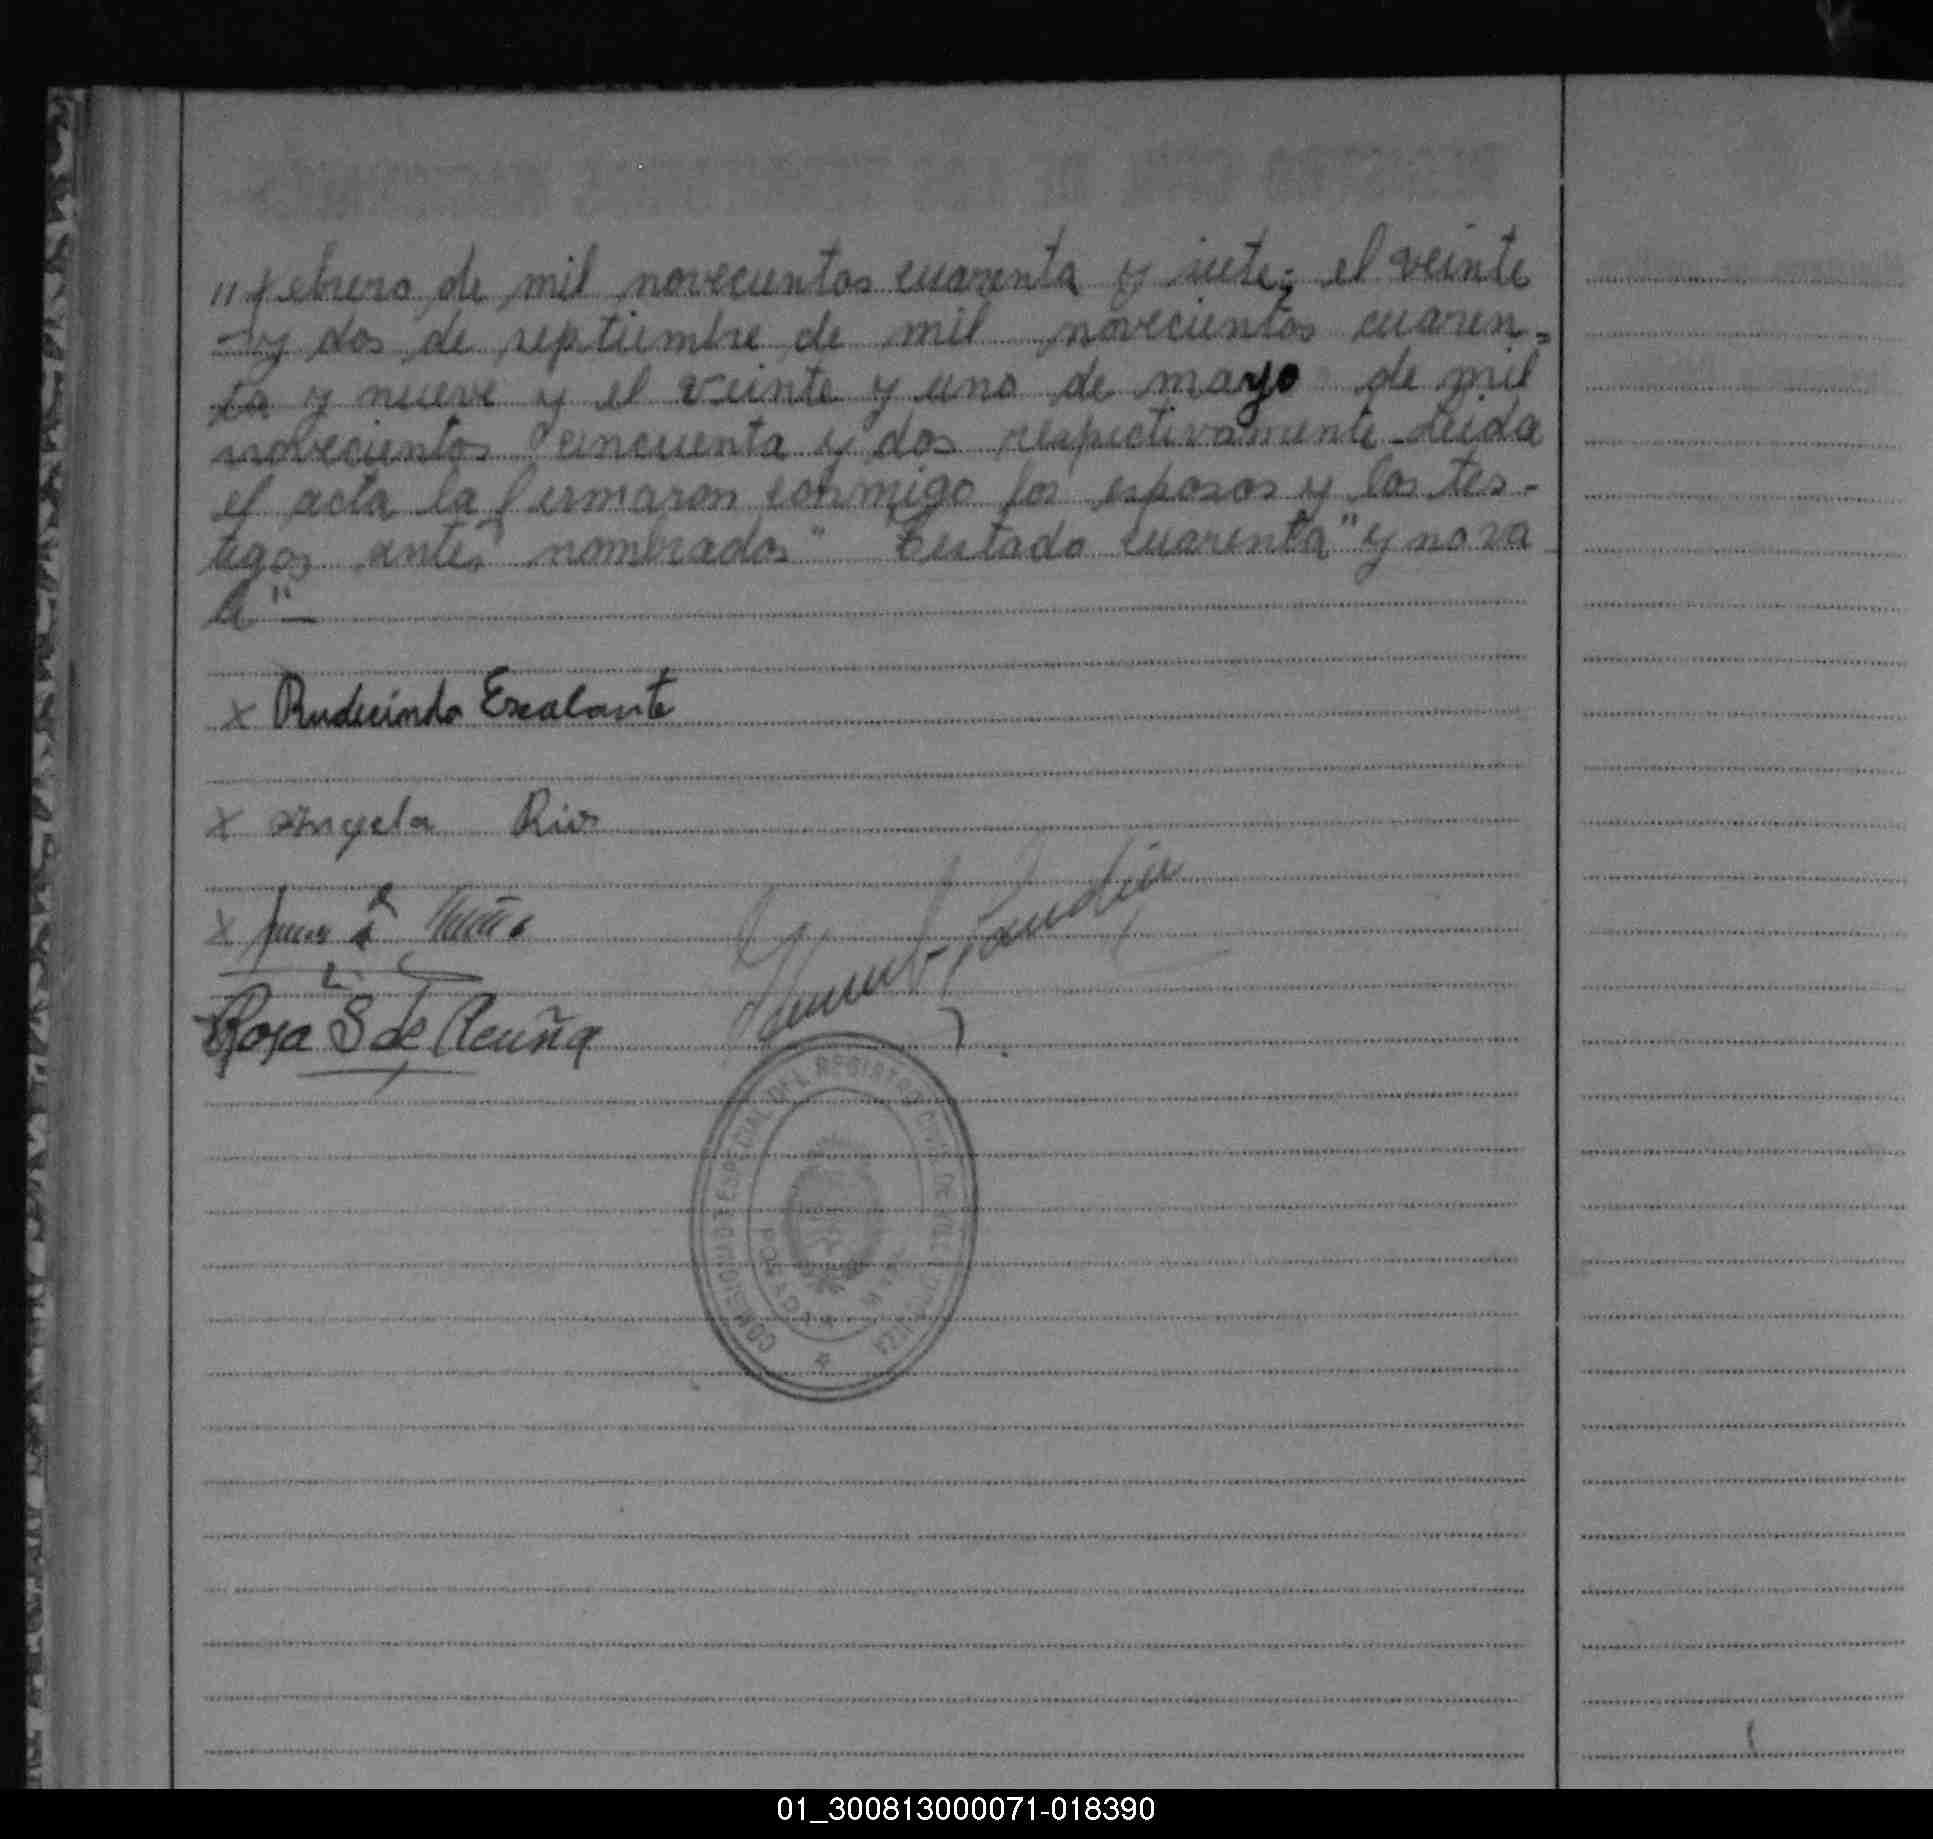 " febrero de mil novecientos cuarenta y siete; el veinte
-y dos de septiembre de mil novecientos cuaren=
ta y nueve y el veinte y uno de mayo de mil
novecientos cincuenta y dos respectivamente - Leida
el acta la firmaron conmigo los esposos y los tes-
tigos antes nombrados" Testado cuarenta" y no va
le" —
x Rudecindo Escalante
x Angela Rios
x
Rosa S de Acuña
COMISIONADO ESPECIAL DEL REGISTRO CIVIL DE
01_300813000071-018390